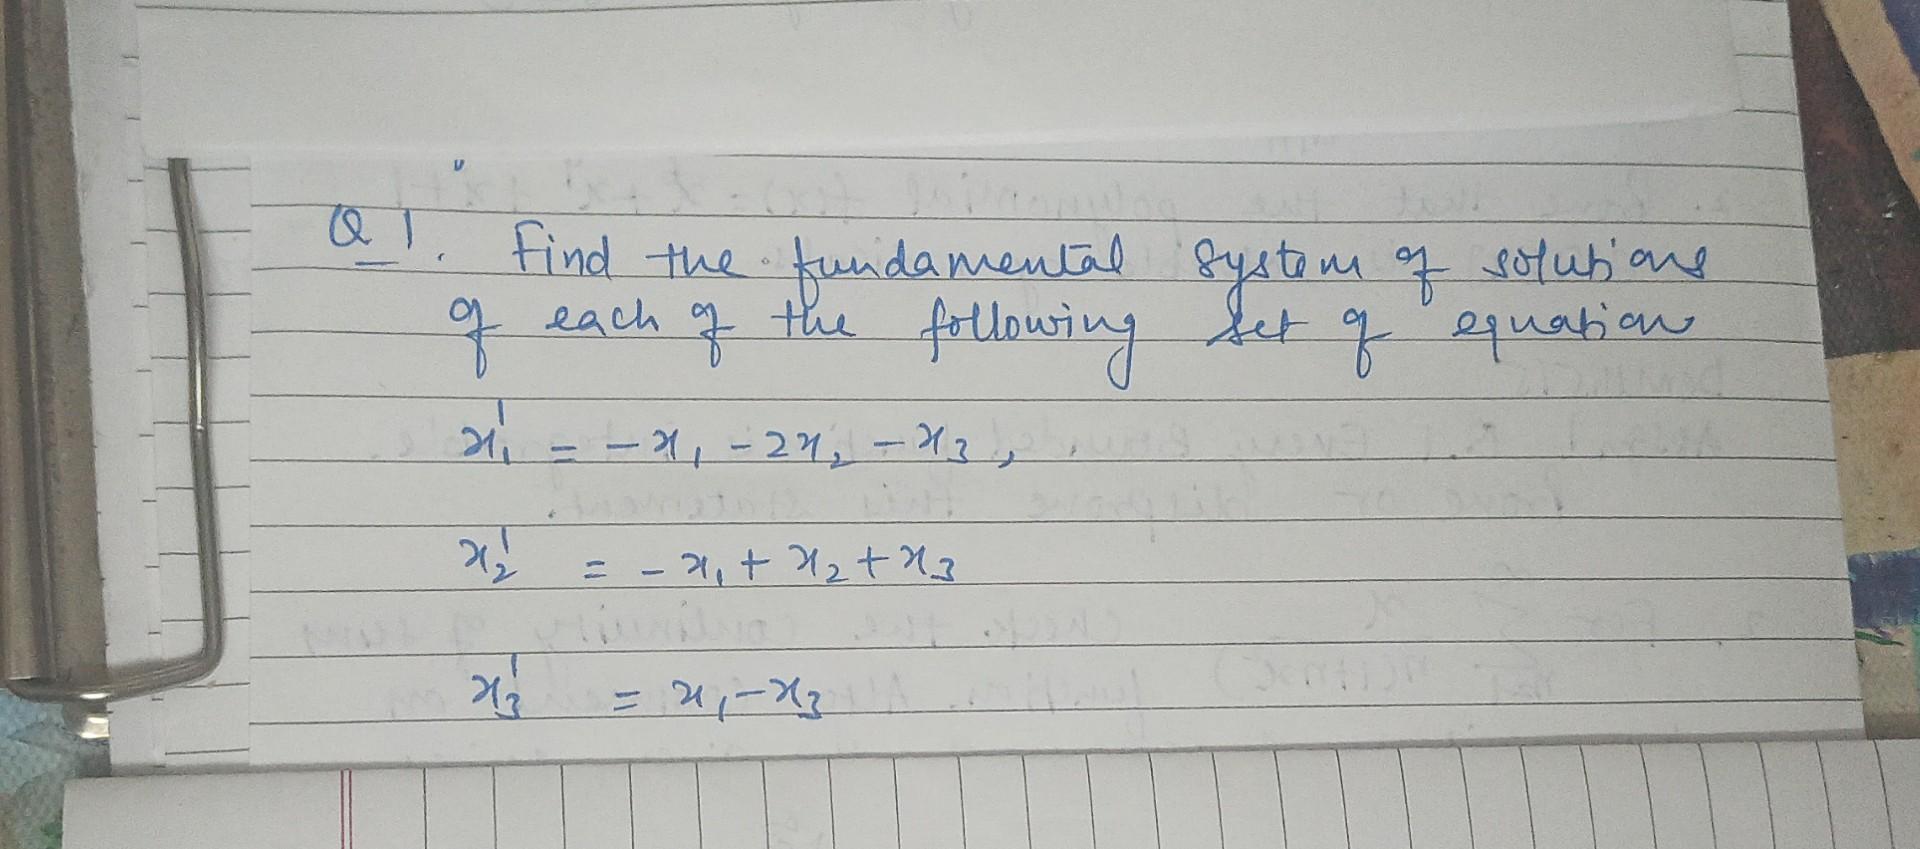 Q1. Find the fundamental system of solutions
of each of the following set of equation
x₁' = -x₁ - 2x₂ - x₃,
x₂' = -x₁ + x₂ + x₃
x₃' = x₁ - x₃